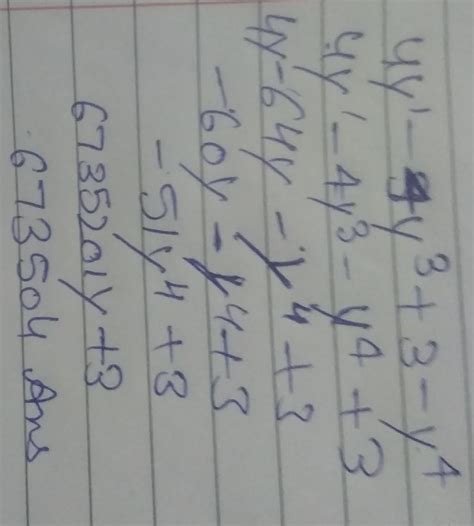 4y' - 4y³ + 3 - y⁴
4y' - 4y³ - y⁴ + 3
4y - 64y - y⁴ + 3
- 60y - y⁴ + 3
- 51y⁴ + 3
6735201y + 3
673504 Ans